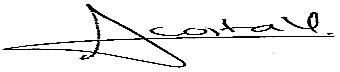 Acosta V.